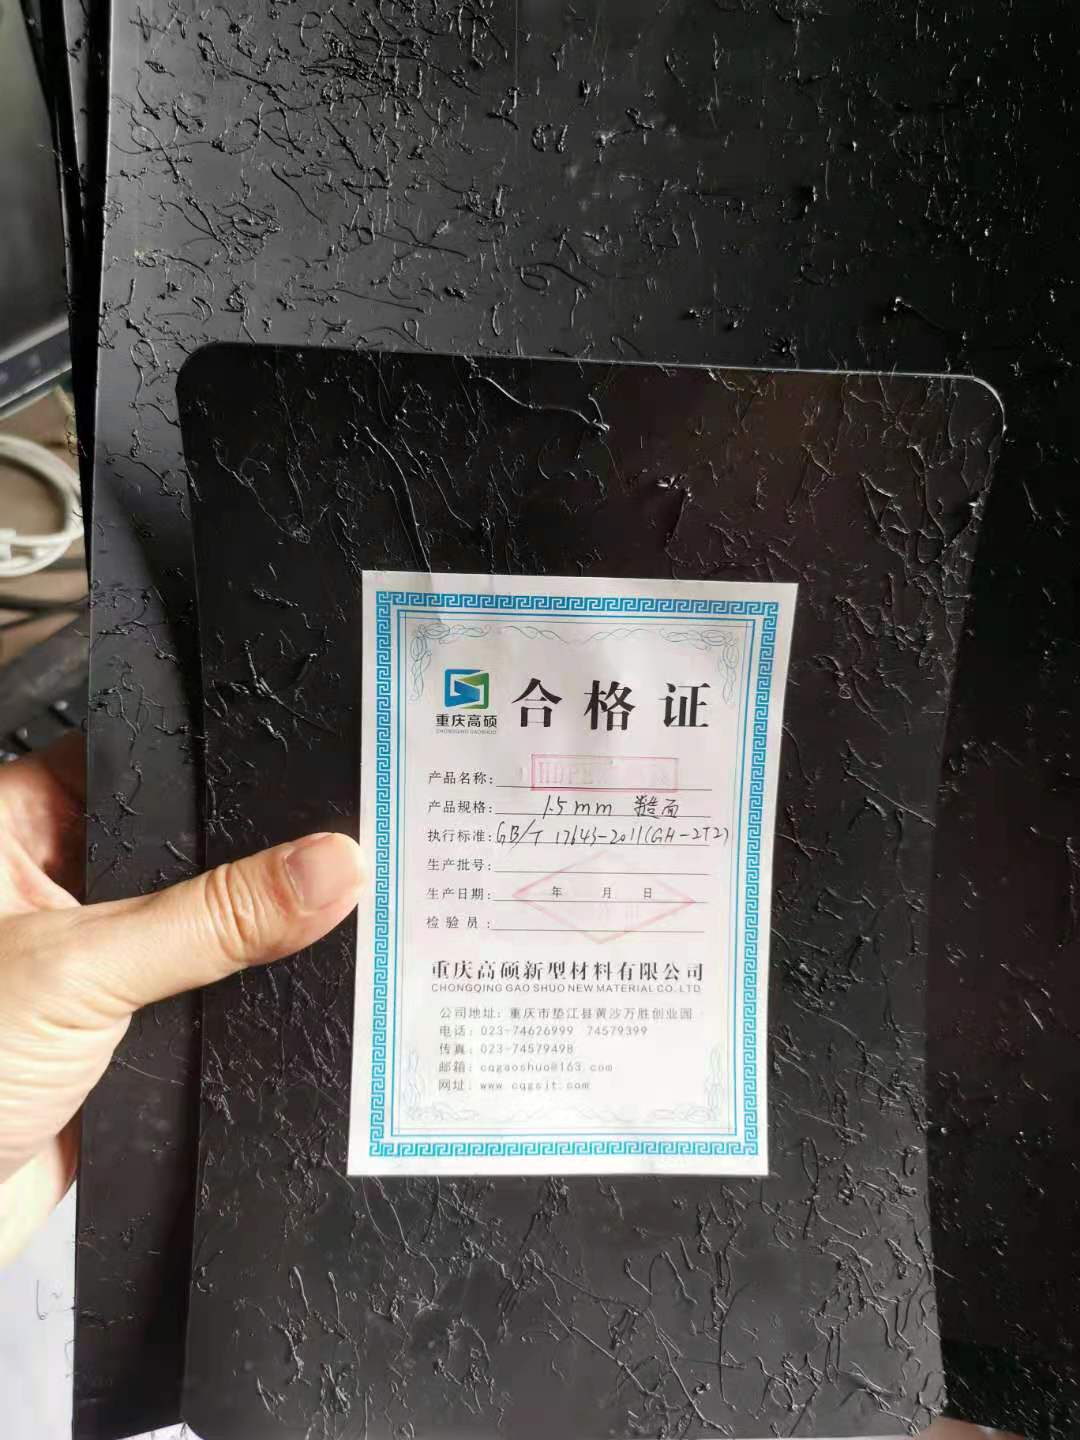 重庆高硕
CHONGQING GAOSHUO
合格证
产品名称: HDPE
产品规格: 1.5mm 糙面
执行标准: GB/T 17643-2011(GH-2T2)
生产批号:
生产日期: 年 月 日
检验员:
重庆高硕新型材料有限公司
CHONGQING GAO SHUO NEW MATERIAL CO. LTD
公司地址: 重庆市垫江县黄沙万胜创业园
电话: 023-74626999 74579399
传真: 023-74579498
邮箱: cqgaoshuo@163.com
网址: www.cqgsjt.com